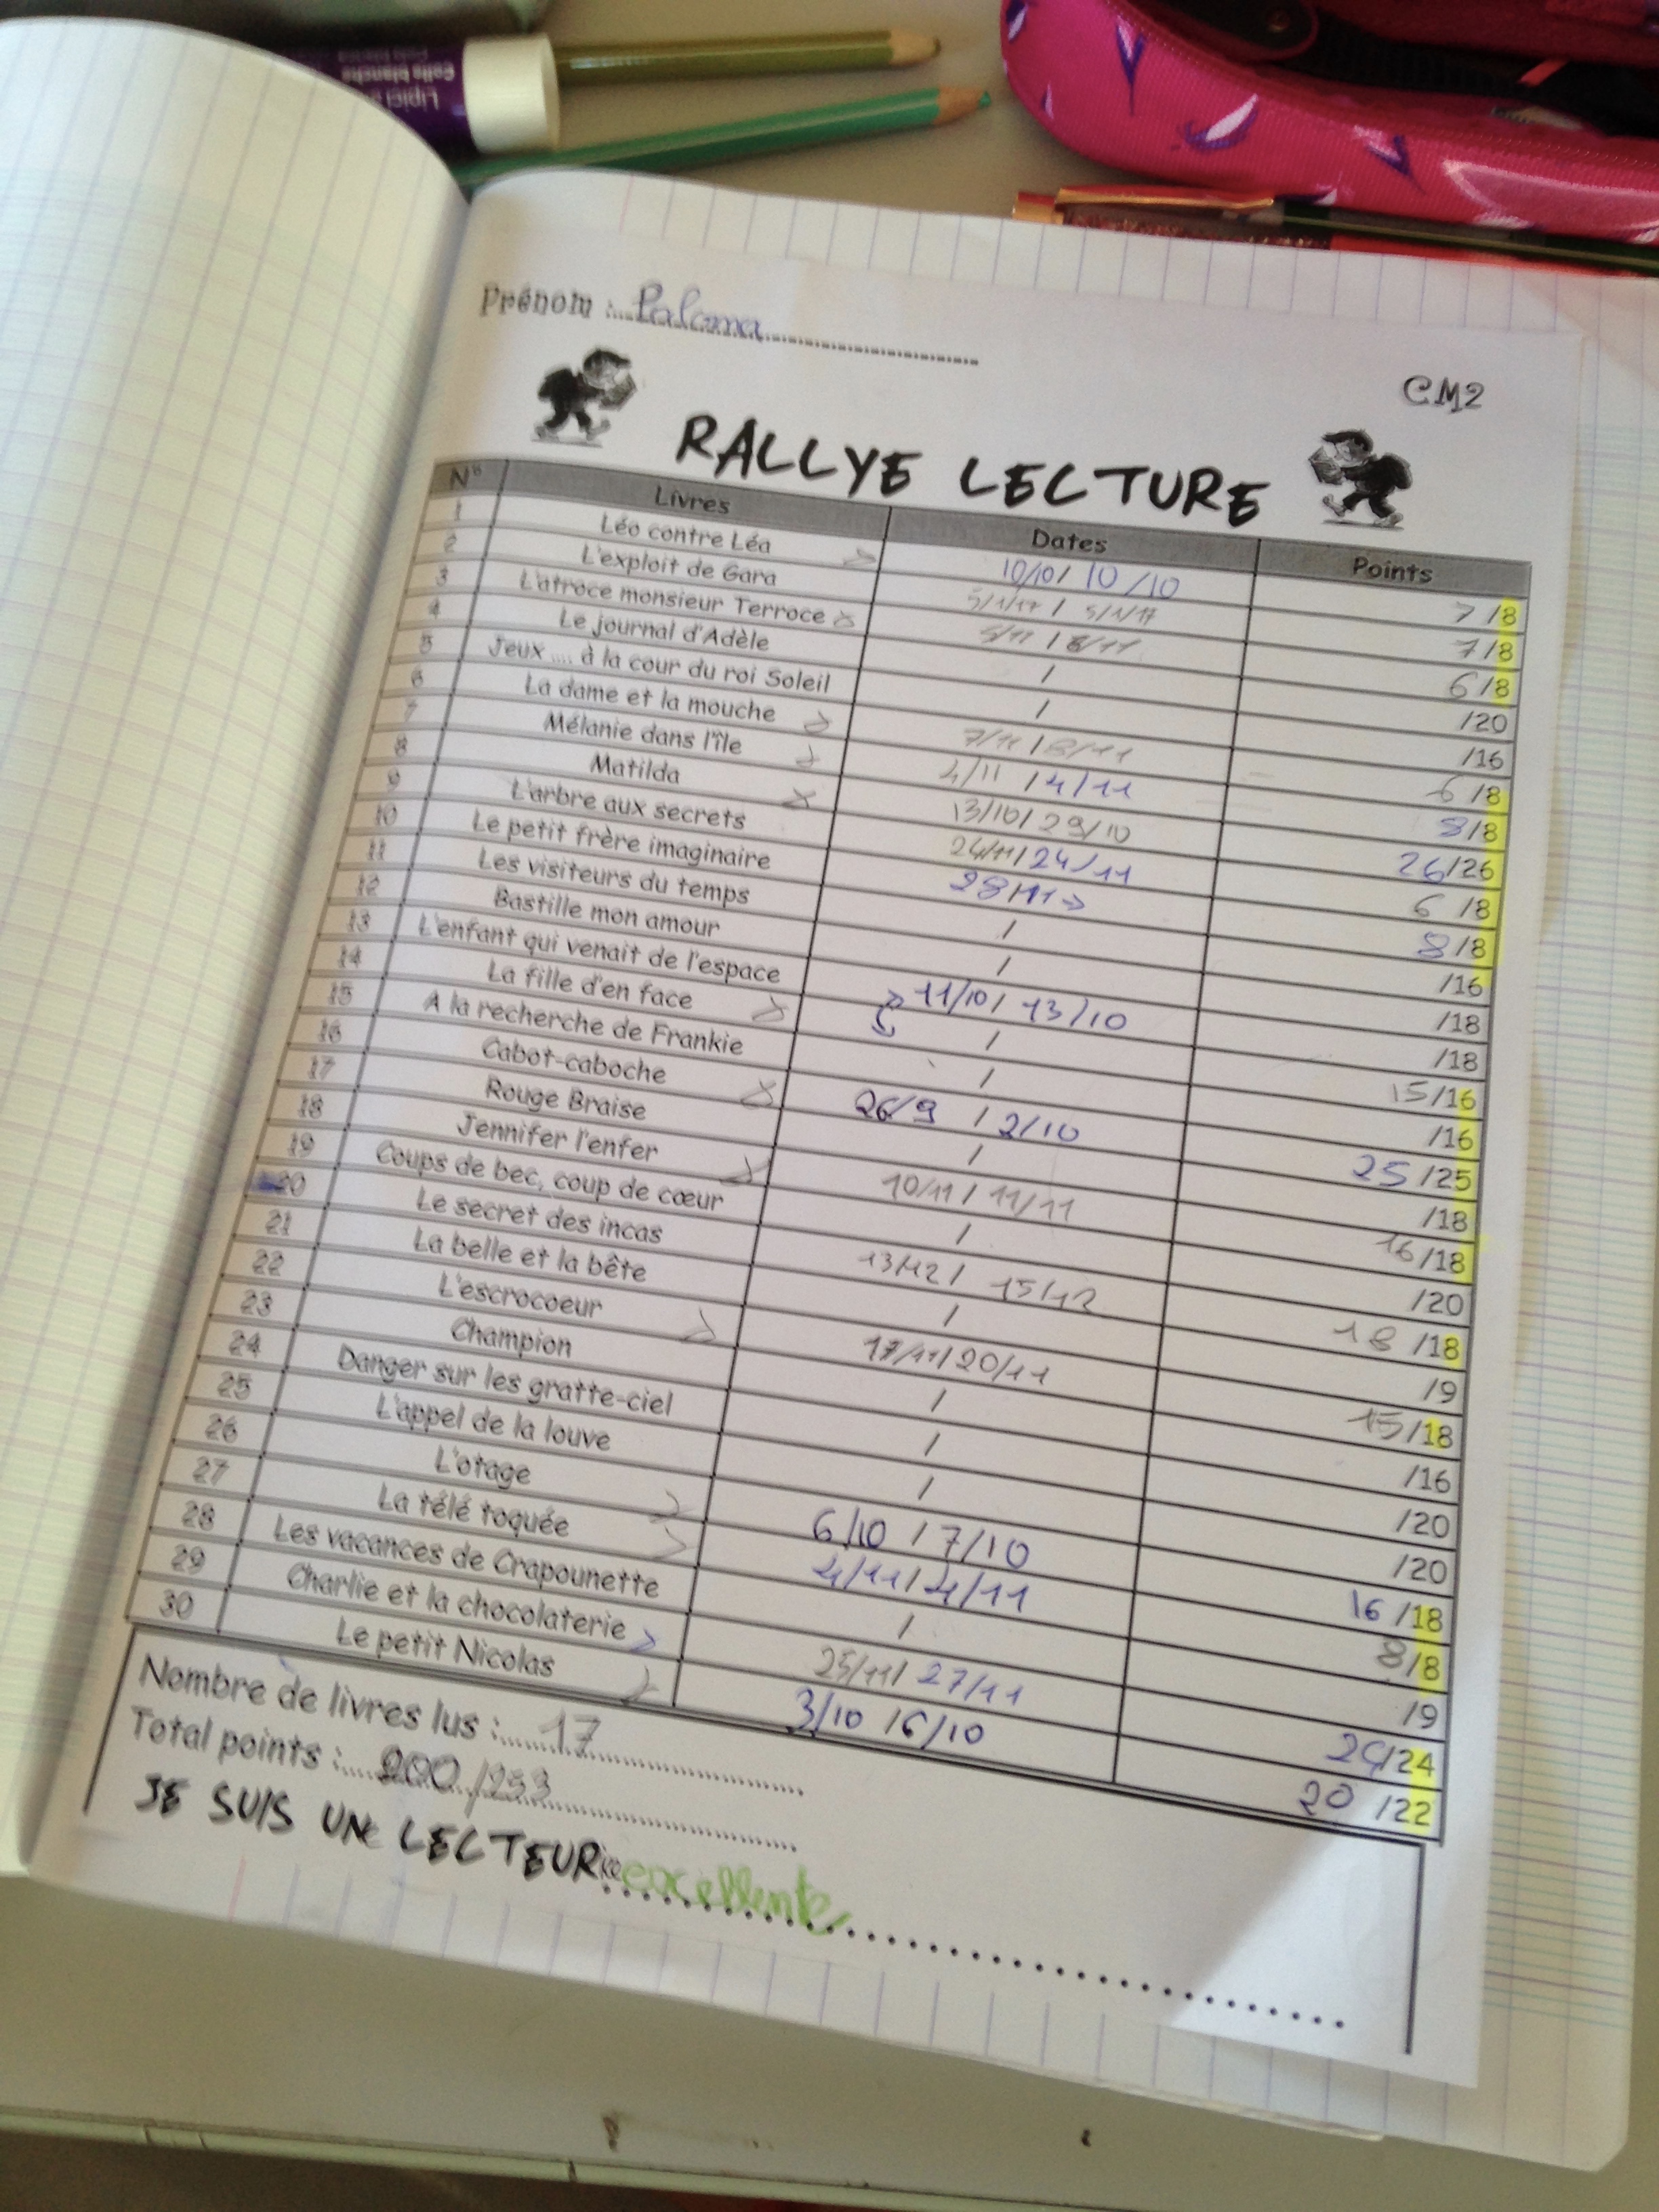 Lipici
Colle blanche
Prénom : Paloma
CM2
RALLYE LECTURE
N° Livres Dates Points
1 Léo contre Léa 10/10 / 10/10 7/8
2 L'exploit de Gara 5/1/17 / 5/1/17 7/8
3 L'atroce monsieur Terroce 5/11 / 8/11 6/8
4 Le journal d'Adèle / /20
5 Jeux .... à la cour du roi Soleil / /16
6 La dame et la mouche 7/11 / 8/11 6/8
7 Mélanie dans l'île 4/11 / 4/11 8/8
8 Matilda 13/10 / 29/10 26/26
9 L'arbre aux secrets 24/11 / 24/11 6/8
10 Le petit frère imaginaire 28/11 → 8/8
11 Les visiteurs du temps / /16
12 Bastille mon amour / /18
13 L'enfant qui venait de l'espace 11/10 / 13/10 /18
14 La fille d'en face / 15/16
15 A la recherche de Frankie / /16
16 Cabot-caboche 26/9 / 2/10 25/25
17 Rouge Braise / /18
18 Jennifer l'enfer 10/11 / 11/11 16/18
19 Coups de bec, coup de cœur / /20
20 Le secret des incas 13/12 / 15/12 18/18
21 La belle et la bête / /9
22 L'escrocoeur 17/11 / 20/11 15/18
23 Champion / /16
24 Danger sur les gratte-ciel / /20
25 L'appel de la louve / /20
26 L'otage 6/10 / 7/10 16/18
27 La télé toquée 4/11 / 4/11 8/8
28 Les vacances de Crapounette / /9
29 Charlie et la chocolaterie 25/11 / 27/11 24/24
30 Le petit Nicolas 3/10 / 6/10 20/22
Nombre de livres lus : 17
Total points : 200/253
JE SUIS UNe LECTEUR excellente